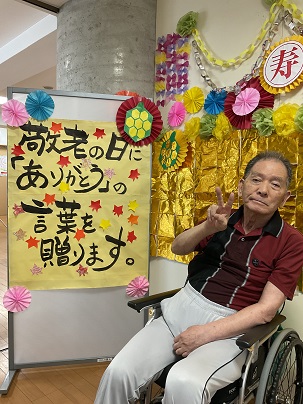 敬老の日に
「ありがとう」の
言葉を
贈ります。
寿